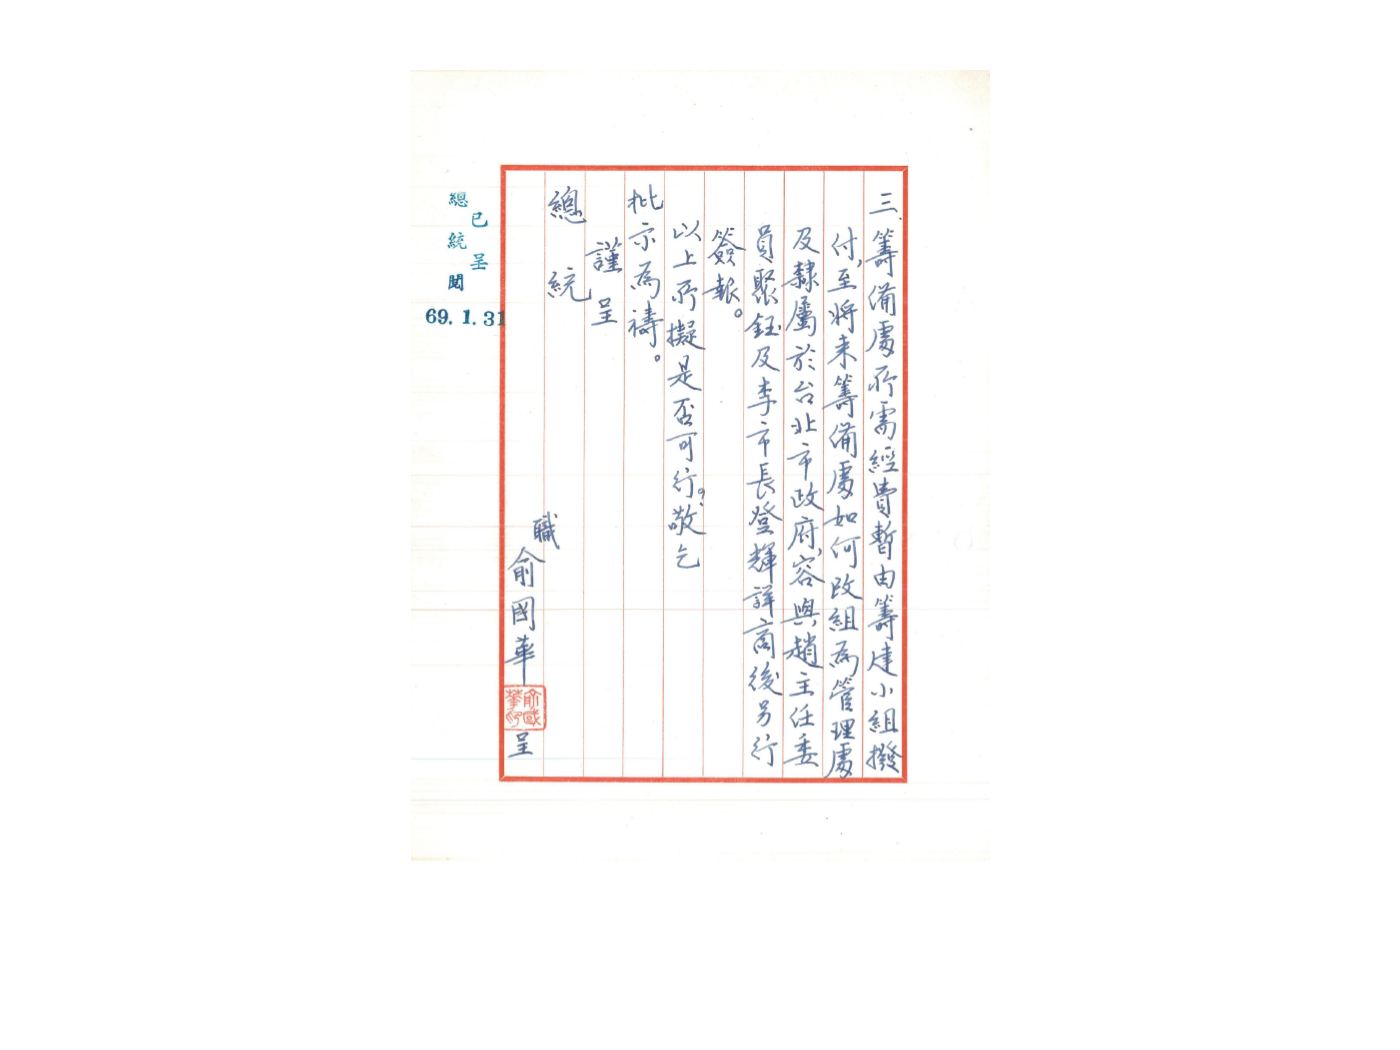 三、籌備處所需經費暫由籌建小組撥
付，至將來籌備處如何改組為管理處
及隸屬於台北市政府，容與趙主任委
員聚鈺及李市長登輝詳商後另行
簽報。
以上所擬是否可行？敬乞
批示為禱。
謹呈
總統
職
俞國華
俞國
華印
呈
已呈
總統閱
69.1.31